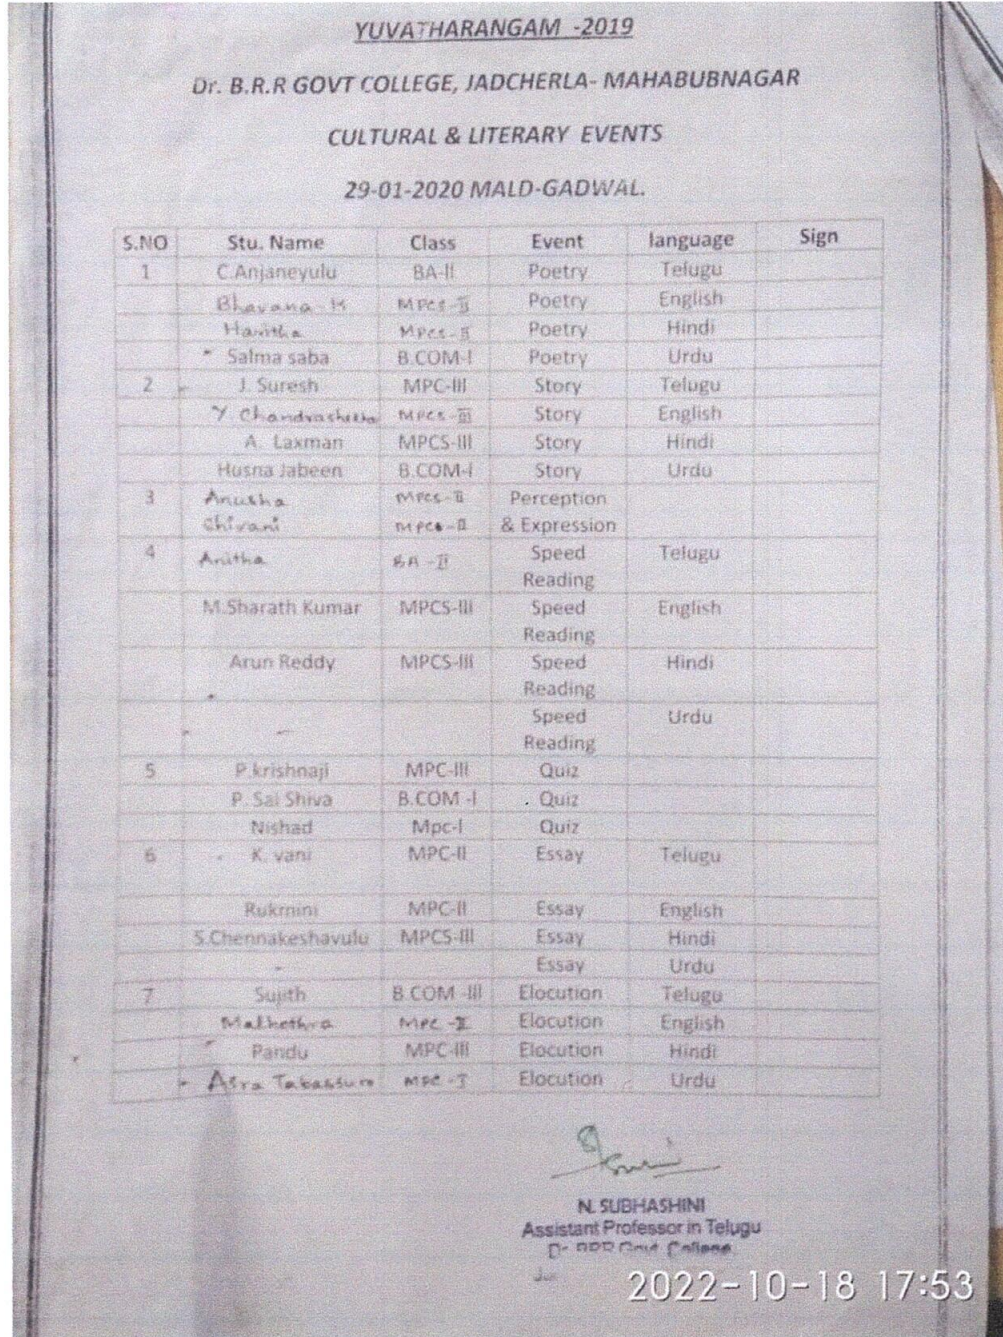 YUVATHARANGAM -2019
Dr. B.R.R GOVT COLLEGE, JADCHERLA- MAHABUBNAGAR
CULTURAL & LITERARY EVENTS
29-01-2020 MALD-GADWAL.
S.NO Stu. Name Class Event language Sign
1 C.Anjaneyulu BA-II Poetry Telugu
Bhavana-K MPCS-II Poetry English
Haritha MPCS-II Poetry Hindi
Salma saba B.COM-I Poetry Urdu
2 J. Suresh MPC-III Story Telugu
Y Chandrashekar MPCS-III Story English
A. Laxman MPCS-III Story Hindi
Husna Jabeen B.COM-I Story Urdu
3 Anusha MPCS-II Perception
Shivani MPCS-II & Expression
4 Anitha BA-II Speed Telugu
Reading
M.Sharath Kumar MPCS-III Speed English
Reading
Arun Reddy MPCS-III Speed Hindi
Reading
- Speed Urdu
Reading
5 P.krishnaji MPC-III Quiz
P. Sai Shiva B.COM -I Quiz
Nishad Mpc-I Quiz
6 K. vani MPC-II Essay Telugu
Rukmini MPC-II Essay English
S.Chennakeshavulu MPCS-III Essay Hindi
- Essay Urdu
7 Sujith B.COM -III Elocution Telugu
Malhethra MPC-II Elocution English
Pandu MPC-III Elocution Hindi
Asra Tabassum MPC-I Elocution Urdu
N. SUBHASHINI
Assistant Professor in Telugu
Dr BRR Govt. College
2022-10-18 17:53